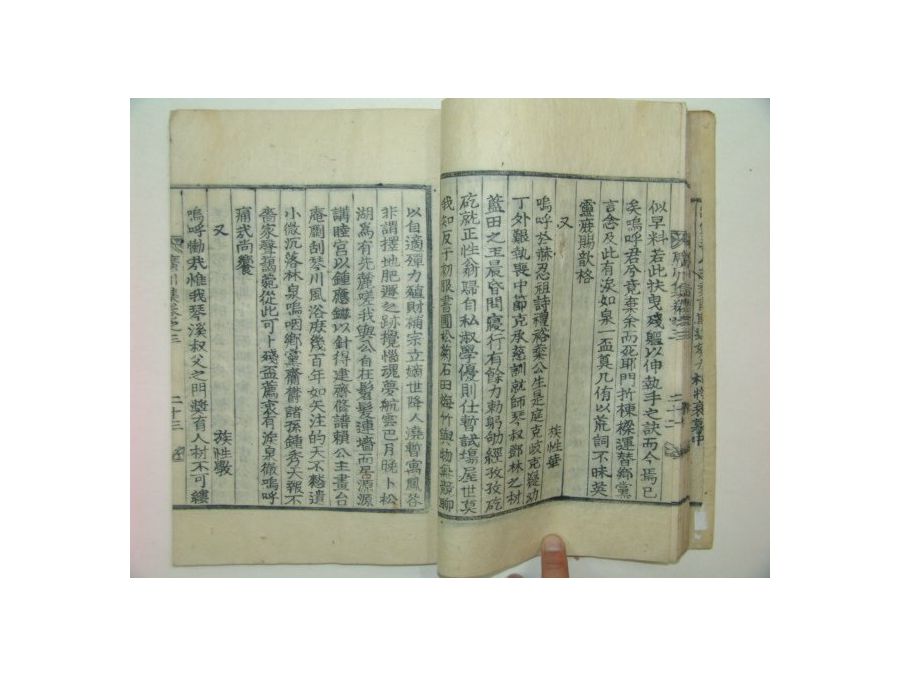 似早料若此扶曳殘軀以伸執手之訣而今焉已
矣嗚呼君今竟棄余而死耶門折棟樑運替鄉黨
言念及此有淚如泉一盃奠几侑以荒詞不昧英
靈庶賜歆格
又 族性華
嗚呼於赫忍祖詩禮裕來公生是庭克岐克嶷幼
丁外艱執喪中節克承慈訓就師琴叔鄧林之材
藍田之玉晨昏問寢行有餘力勅躬劬經孜孜矻
矻就正性翁歸自私淑學優則仕暫試場屋世莫
我知返于初服書圖松菊石田梅竹與物無競聊
以自適殫力殖財補宗立嫡世降人澆暫寓鳳谷
非謂擇地肥遯之跡攪惱魂夢航雲巴月晚卜松
湖嵩有先麓嗟我與公自在髫髮連墻而居源源
講睦宮以鍾應鏄以針得建齋脩譜賴公主畫台
庵劘刮琴川風浴庶幾百年如矢注的天不憖遺
小微沉落林泉嗚咽鄉黨齋鬱諸孫鍾秀天報不
嗇家聲藹菀從此可卜殘盃薦哀有淚泉徹嗚呼
痛哉尚饗
又 族性教
嗚呼慟哉惟我琴溪叔父之門奬有人材不可縷
二十二
二十三